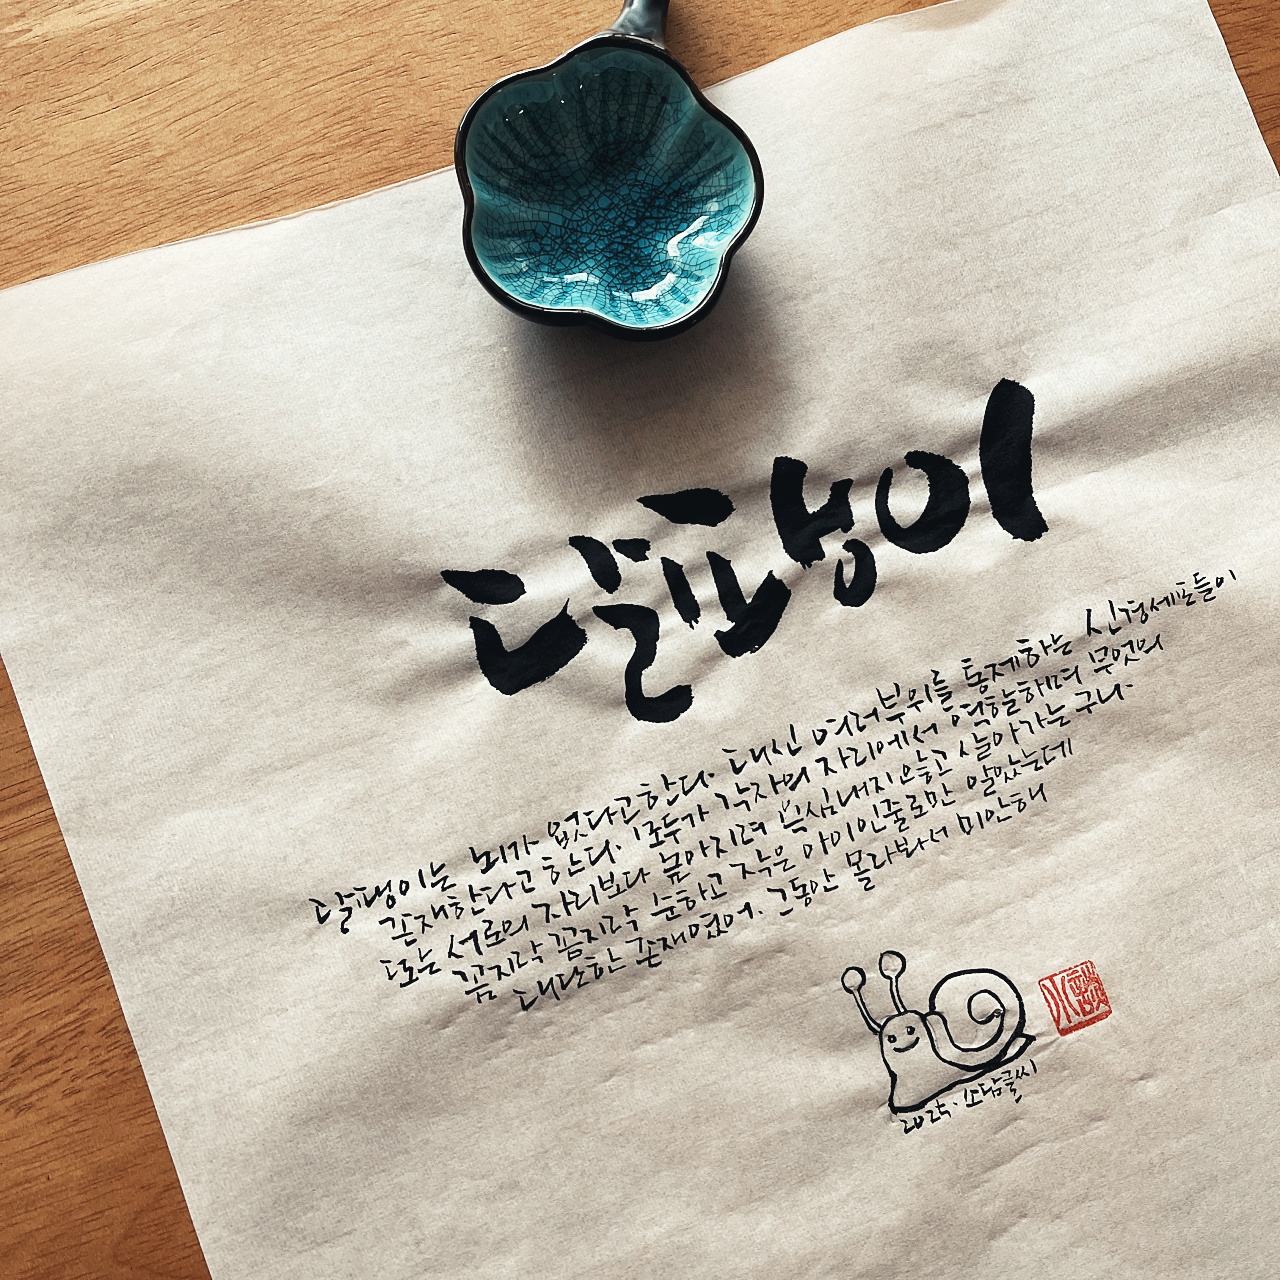 달팽이
달팽이는 뇌가 없다고한다. 대신 여러부위를 통제하는 신경세포들이
존재한다고 한다. 모두가 각자의 자리에서 역할하며 무엇의
또는 서로의 자리보다 높아지려 욕심내지않고 살아가는구나.
꼼지락 꼼지락 순하고 작은 아이인줄로만 알았는데
대단한 존재였어. 그동안 몰라봐서 미안해
2025. 소담글씨